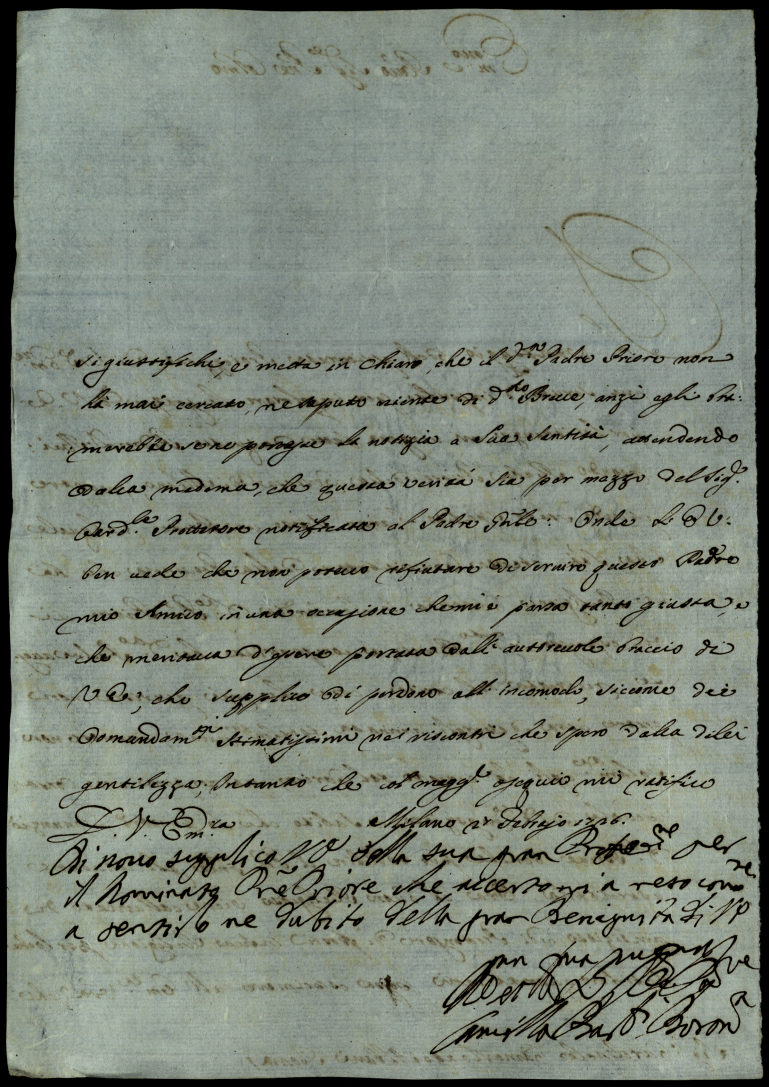 si giustifichi, e metta in chiaro, che il d.n Padre Priore non
hà mai cercato, ne saputo niente di d.to Breve, anzi egli bra-
merebbe se ne porgesse la notizia a Sua Santità, attendendo
dalla medema, che questa verità sia per mezzo del Sig.r
Card.le Protettore notificata al Padre Gn̄le: Onde L' E V.
ben vede che non potevo rifiutare di servire questo Padre
mio Amico in una occasione che mi è parsa tanto giusta, e
che meritava d'essere portata dall' autorevole braccio di
V E; che supplico di perdono all' incomodo, siccome de i
Comandam.ti stimatissimi ne i riscontri che spero dalla di lei
gentilezza, Intanto che col magg.r ossequio mi ratifico
D. V. Em.za Milano 27 Febrajo 1726.
Di novo supplico VE della sua gran per
il Nominato Prē Priore che
a sentirlo ne dubito della gran Benignità di VE
Camilla Bar.a